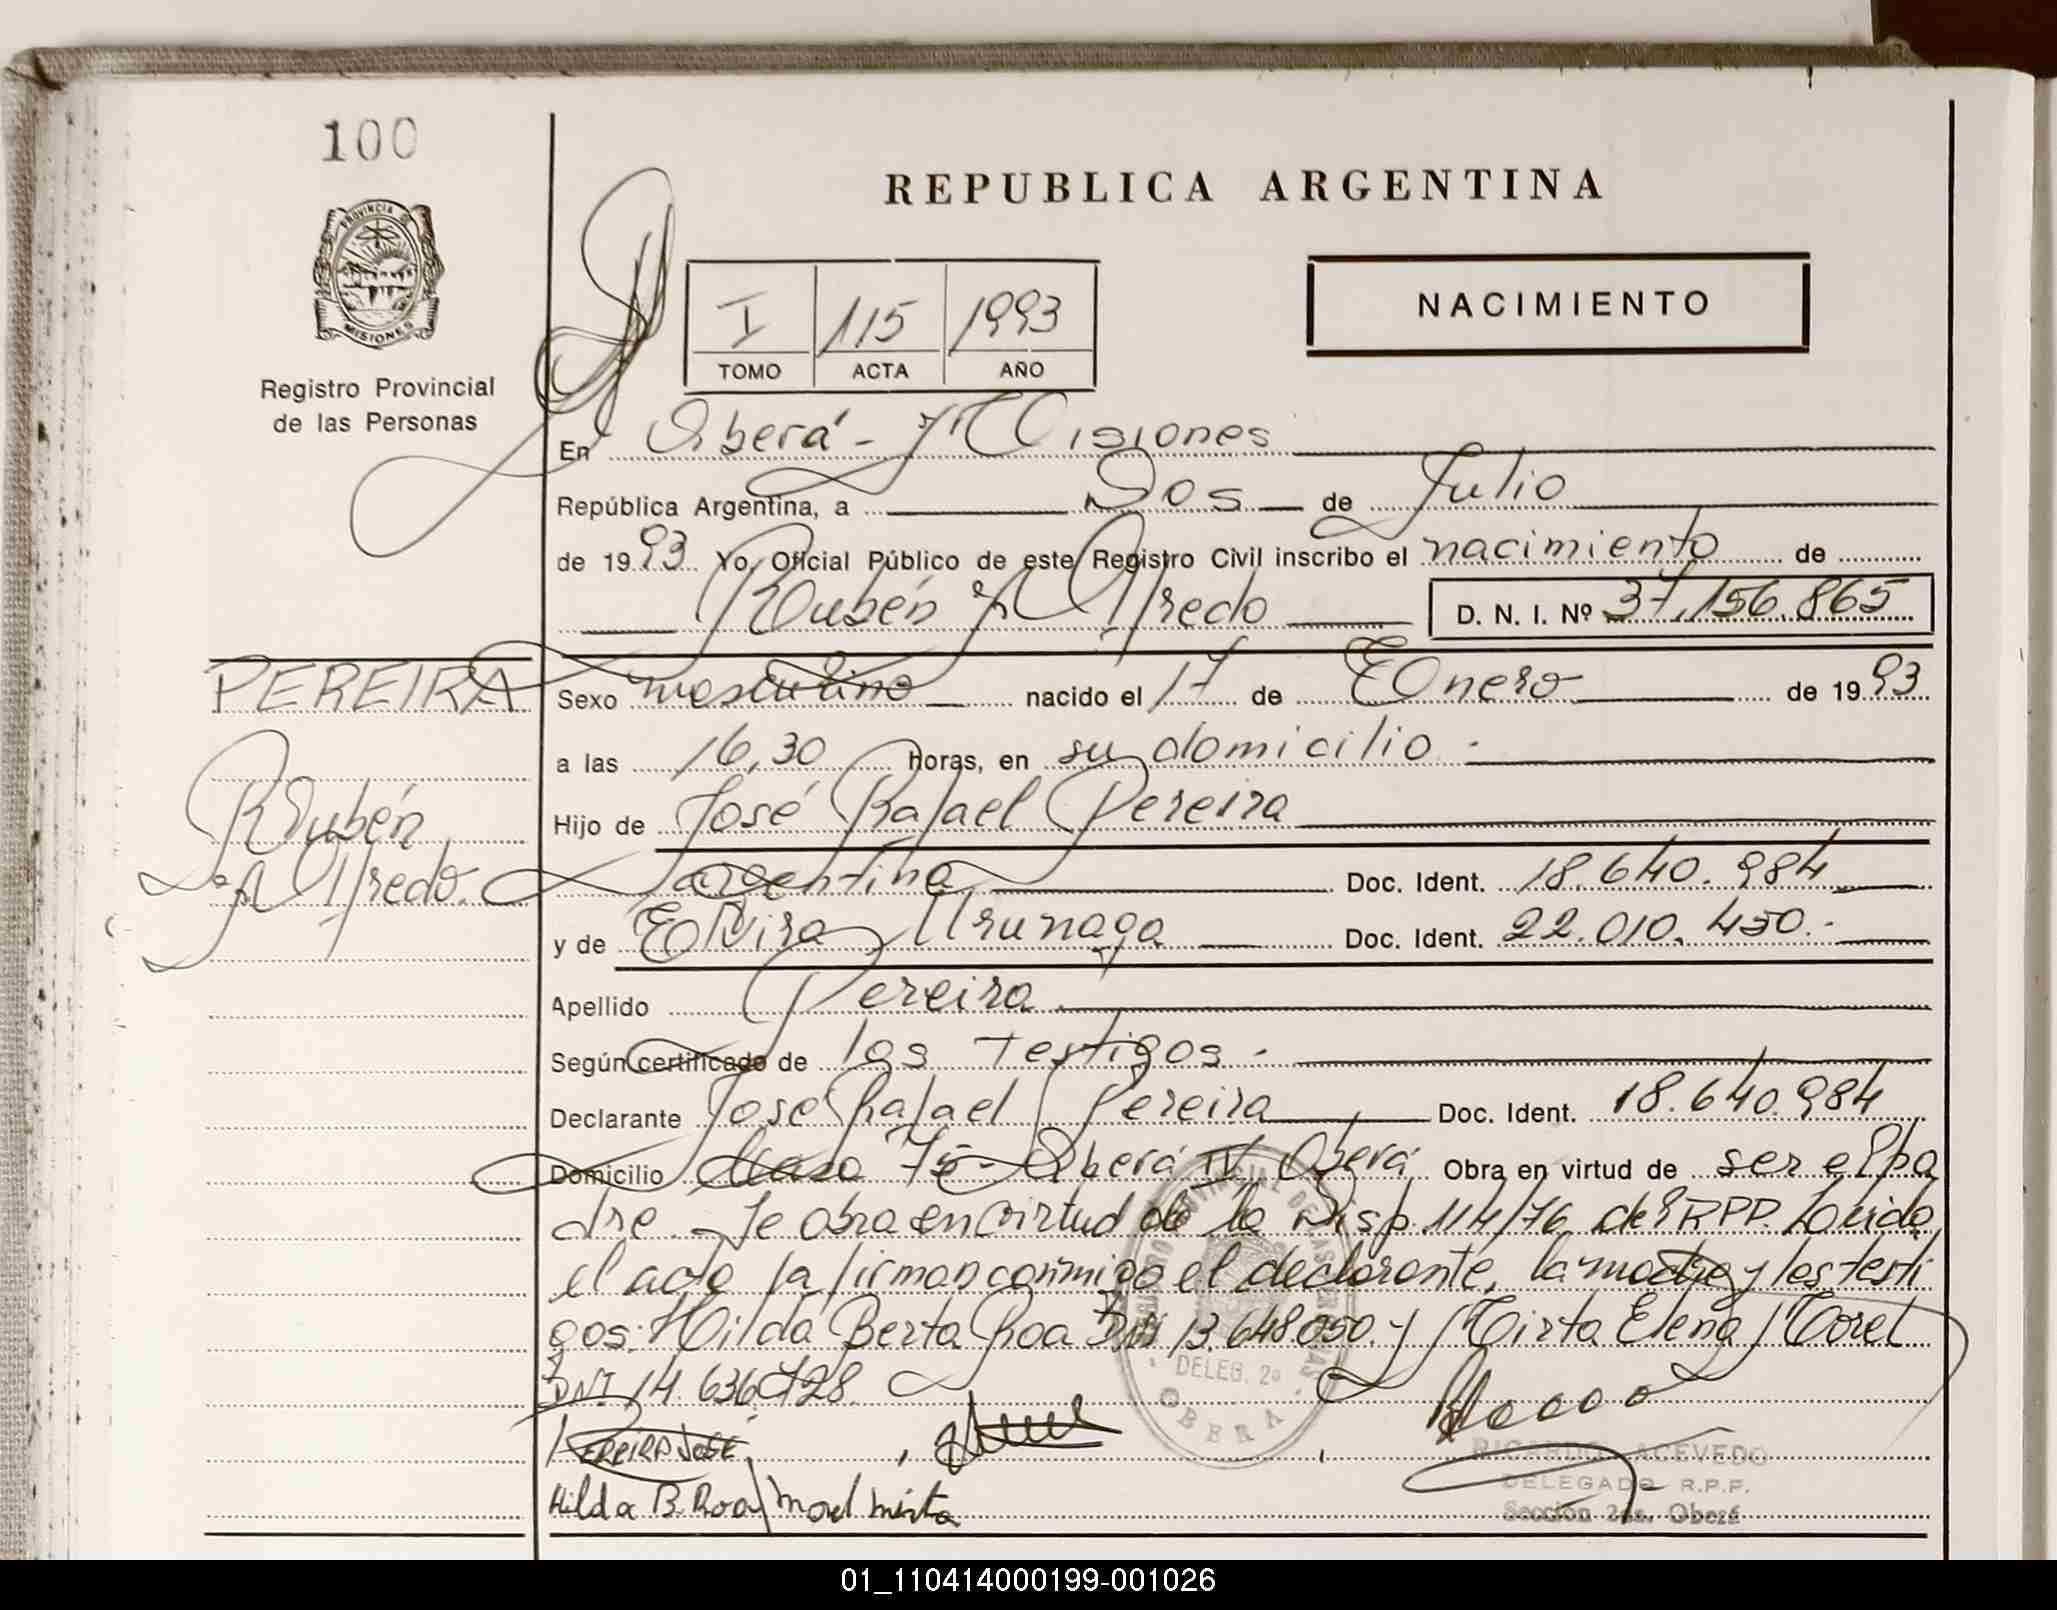 100
PROVINCIA DE
MISIONES
Registro Provincial
de las Personas
REPUBLICA ARGENTINA
NACIMIENTO
I 115 1993
TOMO ACTA AÑO
En Oberá - Misiones
República Argentina, a Dos de Julio
de 1993 Yo, Oficial Público de este Registro Civil inscribo el nacimiento de
Rubén Alfredo D. N. I. Nº 37.156.865
PEREIRA
Rubén
Alfredo.
Sexo masculino nacido el 17 de Enero de 1993
a las 16,30 Horas, en su domicilio.
Hijo de José Rafael Pereira
argentina Doc. Ident. 18.640.984
y de Elvira Urunaga Doc. Ident. 22.010.450.-
Apellido Pereira
Según certificado de los testigos.-
Declarante José Rafael Pereira Doc. Ident. 18.640.984
Domicilio Casa 75- Oberá IV Oberá Obra en virtud de ser el pa
dre. Se obra en virtud de la Disp. 114/76 del RPP. Leida
el acta la firman conmigo el declarante, la madre y los testi
gos: Hilda Berta Roa DNI 13.648.050. y Mirta Elena Morel
DNI. 14.636.728.
PEREIRA JOSE
Hilda B. Roa Morel Mirta
DELEG. 2a
OBERA
RICARDO ACEVEDO
DELEGADO R.P.P.
Sección 2da. Oberá
01_110414000199-001026